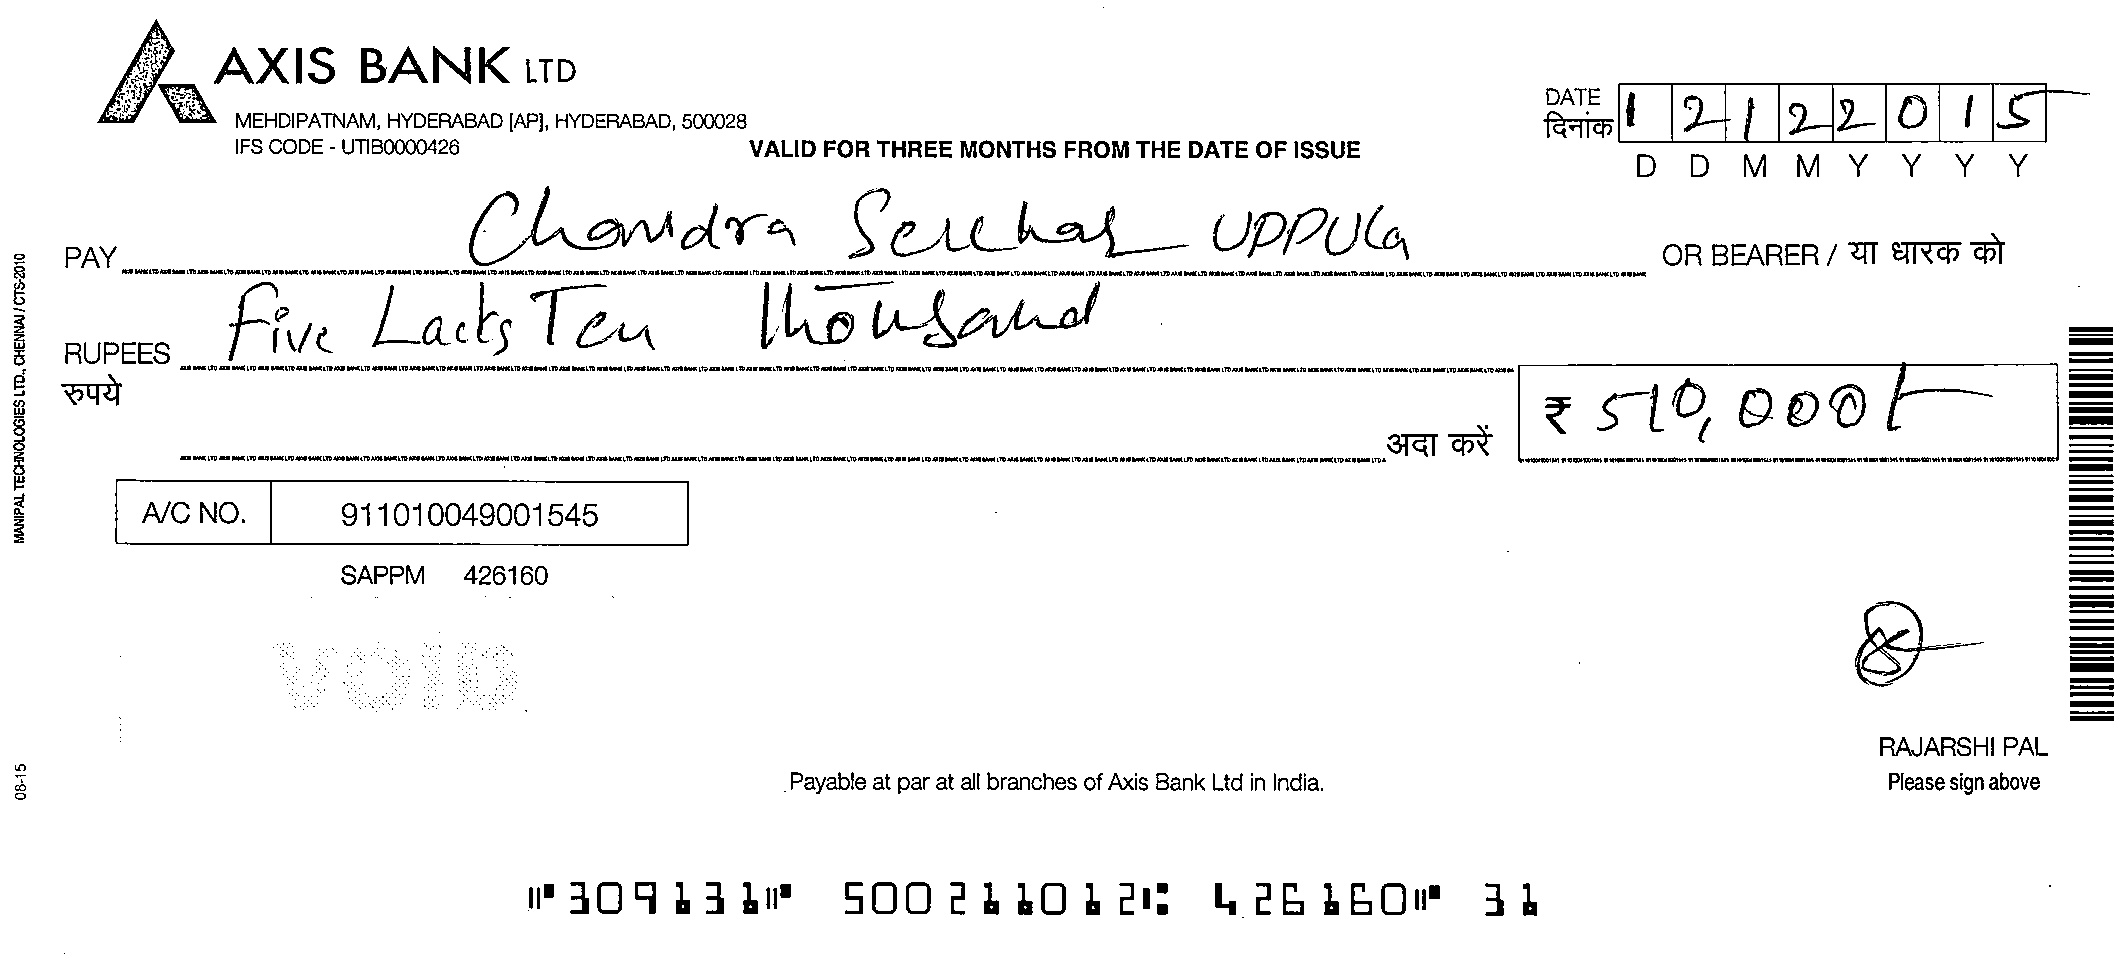 AXIS BANK LTD
MEHDIPATNAM, HYDERABAD [AP], HYDERABAD, 500028
IFS CODE - UTIB0000426
VALID FOR THREE MONTHS FROM THE DATE OF ISSUE
DATE
दिनांक 1 2 1 2 2 0 1 5
D D M M Y Y Y Y
PAY Chandra Sekhar UPPULa OR BEARER / या धारक को
RUPEES Five Lacks Ten Thousand
रुपये
अदा करें ₹ 510,000/-
A/C NO. 911010049001545
SAPPM 426160
VOID
RAJARSHI PAL
Please sign above
Payable at par at all branches of Axis Bank Ltd in India.
⑈309131⑈ 500211012⑆ 426160⑈ 31
MANIPAL TECHNOLOGIES LTD., CHENNAI / CTS-2010
08-15